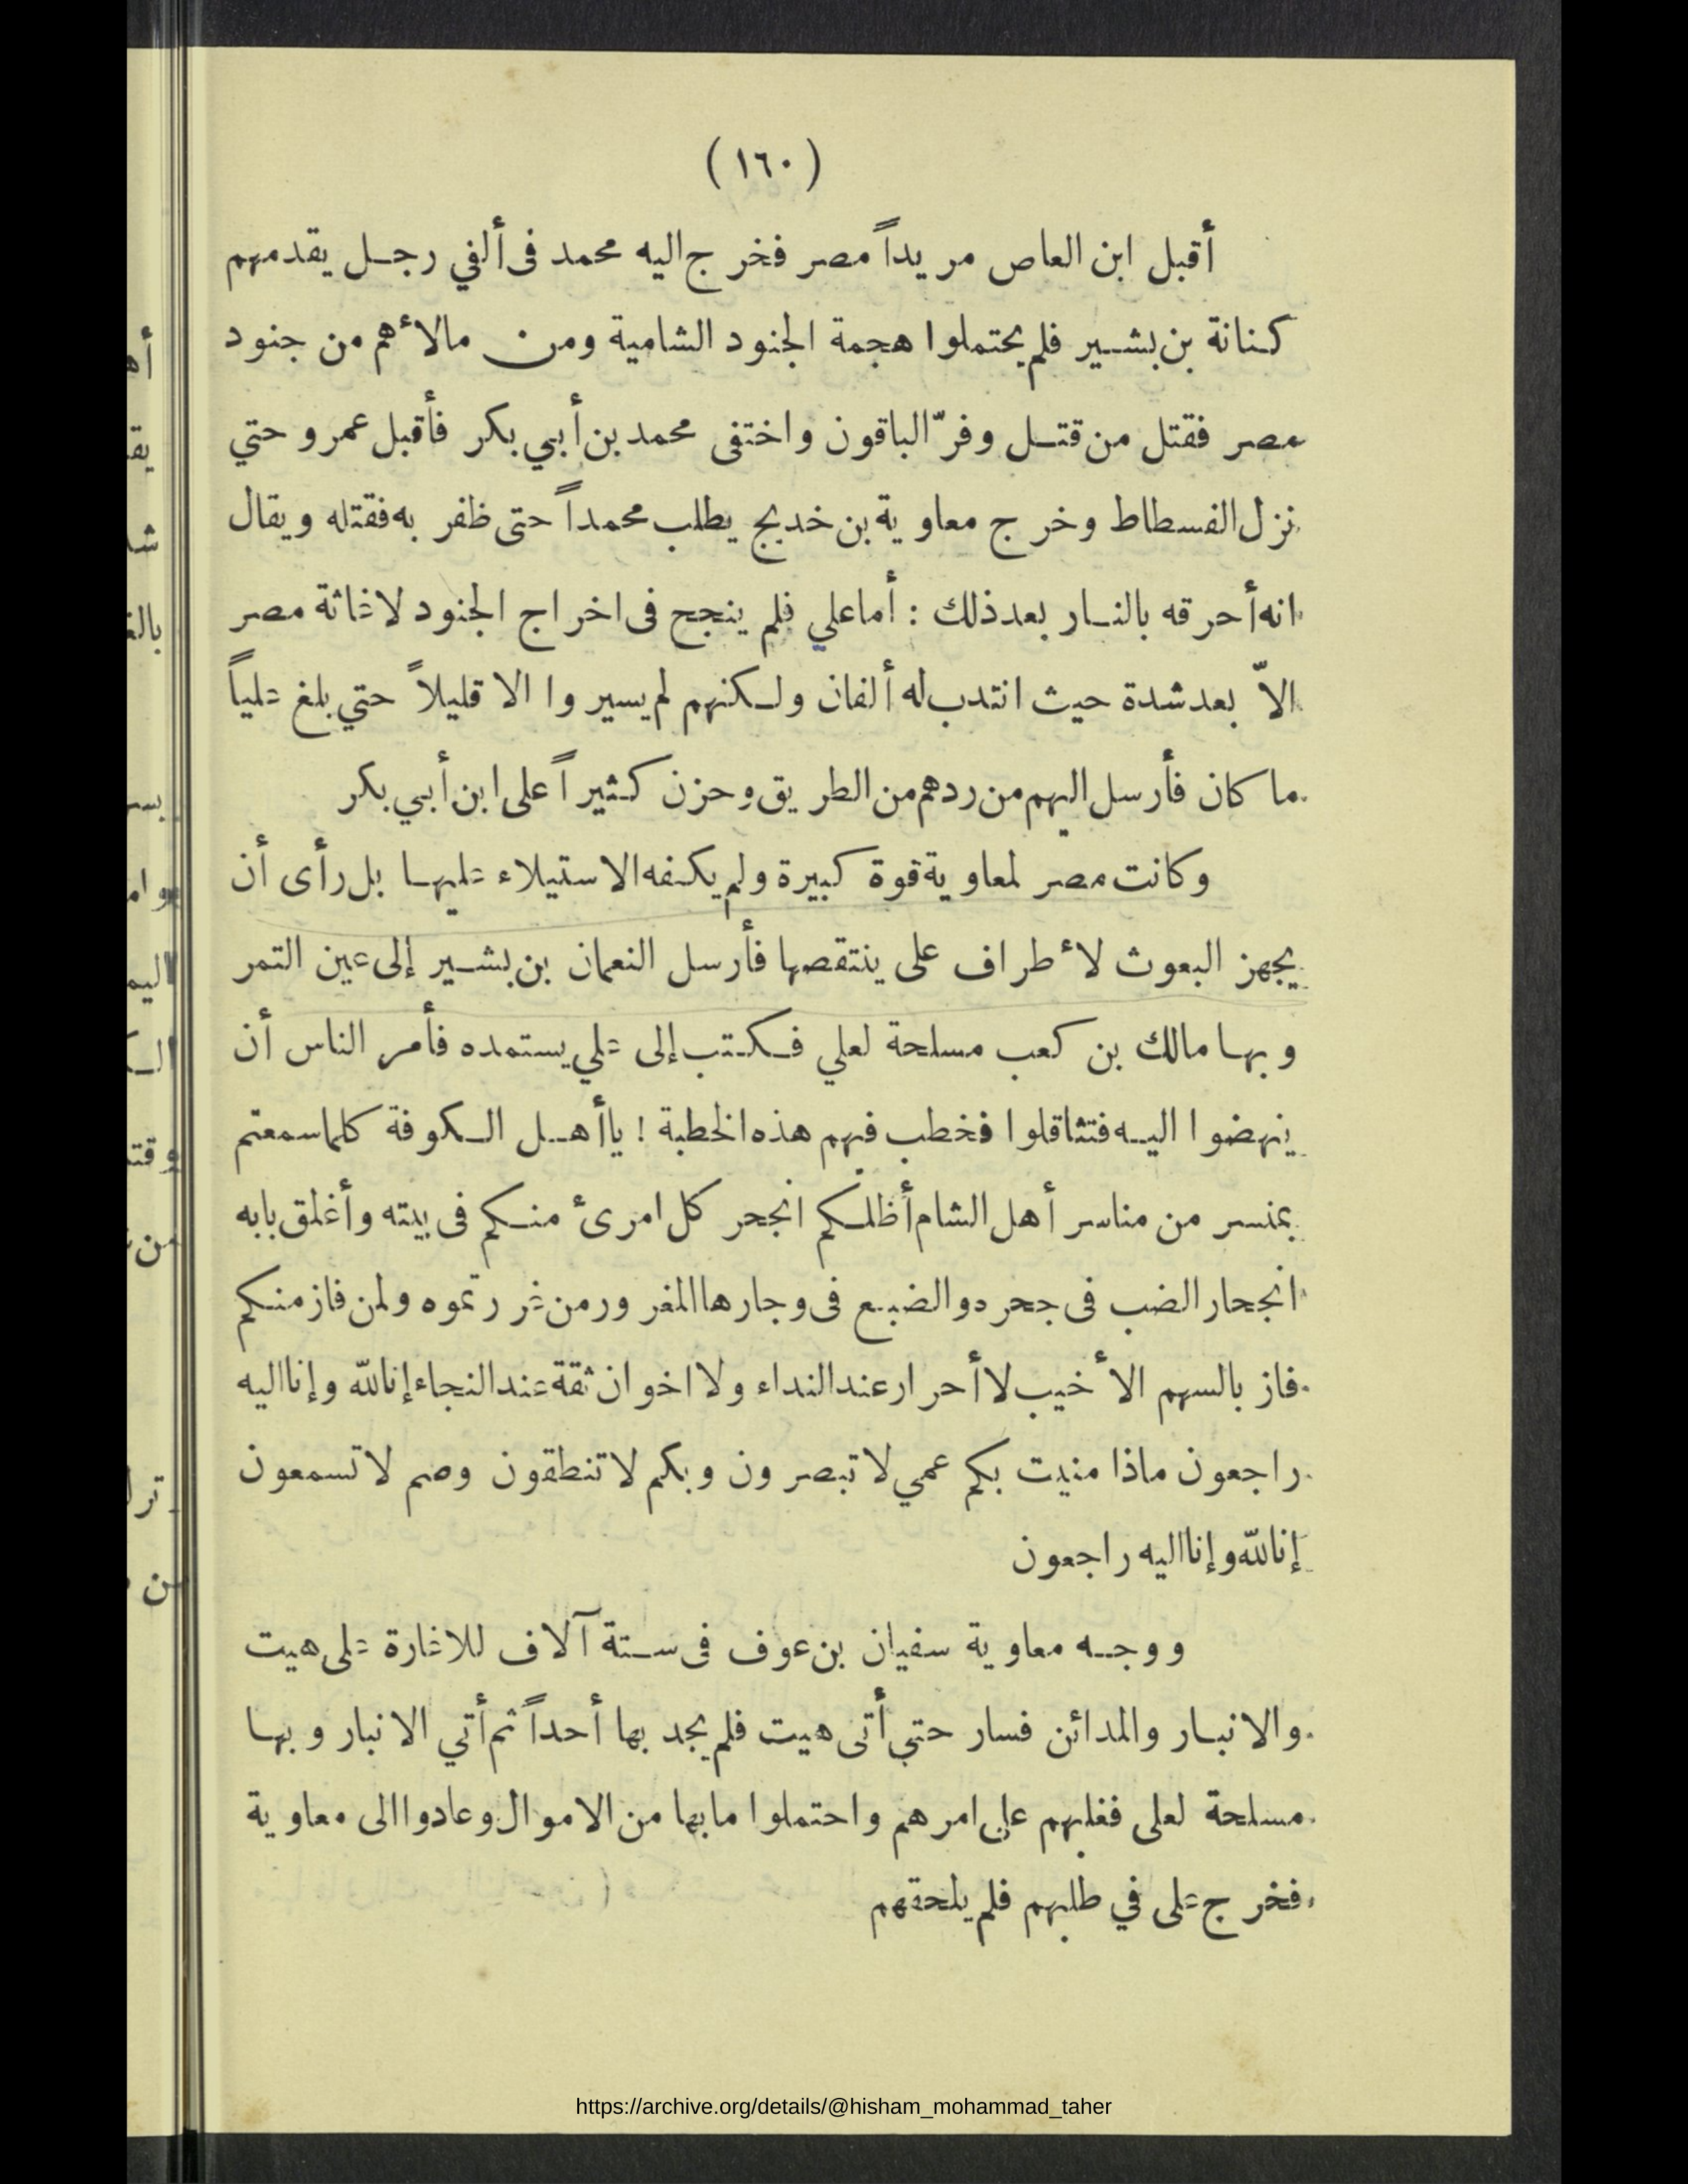 (١٦٠)
أقبل ابن العاص مريداً مصر فخرج اليه محمد فى ألفي رجل يقدمهم
كنانة بن بشير فلم يحتملوا هجمة الجنود الشامية ومن مالأهم من جنود
مصر فقتل من قتل وفرّ الباقون واختفى محمد بن أبي بكر فأقبل عمرو حتي
نزل الفسطاط وخرج معاوية بن خديج يطلب محمداً حتى ظفر به فقتله ويقال
انه أحرقه بالنار بعد ذلك : أما علي فلم ينجح فى اخراج الجنود لاغاثة مصر
الاّ بعد شدة حيث انتدب له ألفان ولكنهم لم يسيروا الا قليلاً حتي بلغ علياً
ما كان فأرسل اليهم من ردهم من الطريق وحزن كثيراً على ابن أبي بكر
وكانت مصر لمعاوية قوة كبيرة ولم يكفه الاستيلاء عليها بل رأى أن
يجهز البعوث لأطراف على ينتقصها فأرسل النعمان بن بشير إلى عين التمر
وبها مالك بن كعب مسلحة لعلي فكتب إلى علي يستمده فأمر الناس أن
ينهضوا اليه فتثاقلوا فخطب فيهم هذه الخطبة ! يا أهل الكوفة كلما سمعتم
بمنسر من مناسر أهل الشام أظلكم انجحر كل امرئ منكم فى بيته وأغلق بابه
انجحار الضب فى جحره والضبع فى وجارها المغرور من غررتموه ولمن فاز منكم
فاز بالسهم الأخيب لا أحرار عند النداء ولا اخوان ثقة عند النجاء إنا لله وإنا اليه
راجعون ماذا منيت بكم عمي لا تبصرون وبكم لا تنطقون وصم لا تسمعون
إنا لله وإنا اليه راجعون
ووجه معاوية سفيان بن عوف فى ستة آلاف للاغارة على هيت
والانبار والمدائن فسار حتي أتى هيت فلم يجد بها أحداً ثم أتي الانبار وبها
مسلحة لعلى فغلبهم على امرهم واحتملوا ما بها من الاموال وعادوا الى معاوية
فخرج على في طلبهم فلم يلحقهم
https://archive.org/details/@hisham_mohammad_taher